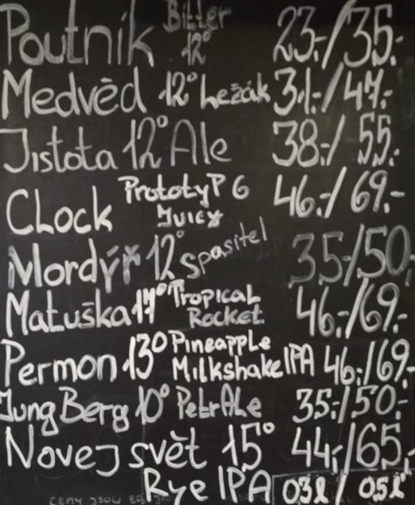 Poutník Bitter 12° 23,-/35,-
Medvěd 12° Ležák 31,-/47,-
Jistota 12° Ale 38,-/55,-
CLock PrototyP 6 Juicy 46,-/69,-
Mordýř 12° Spasitel 35/50,-
Matuška 17° Tropical Rocket 46,-/69,-
Permon 13° Pineapple Milkshake IPA 46,-/69,-
Jung Berg 10° Petr Ale 35,-/50,-
Novej svět 15° 44,-/65,-
Rye IPA 0,3l / 0,5l
ceny jsou